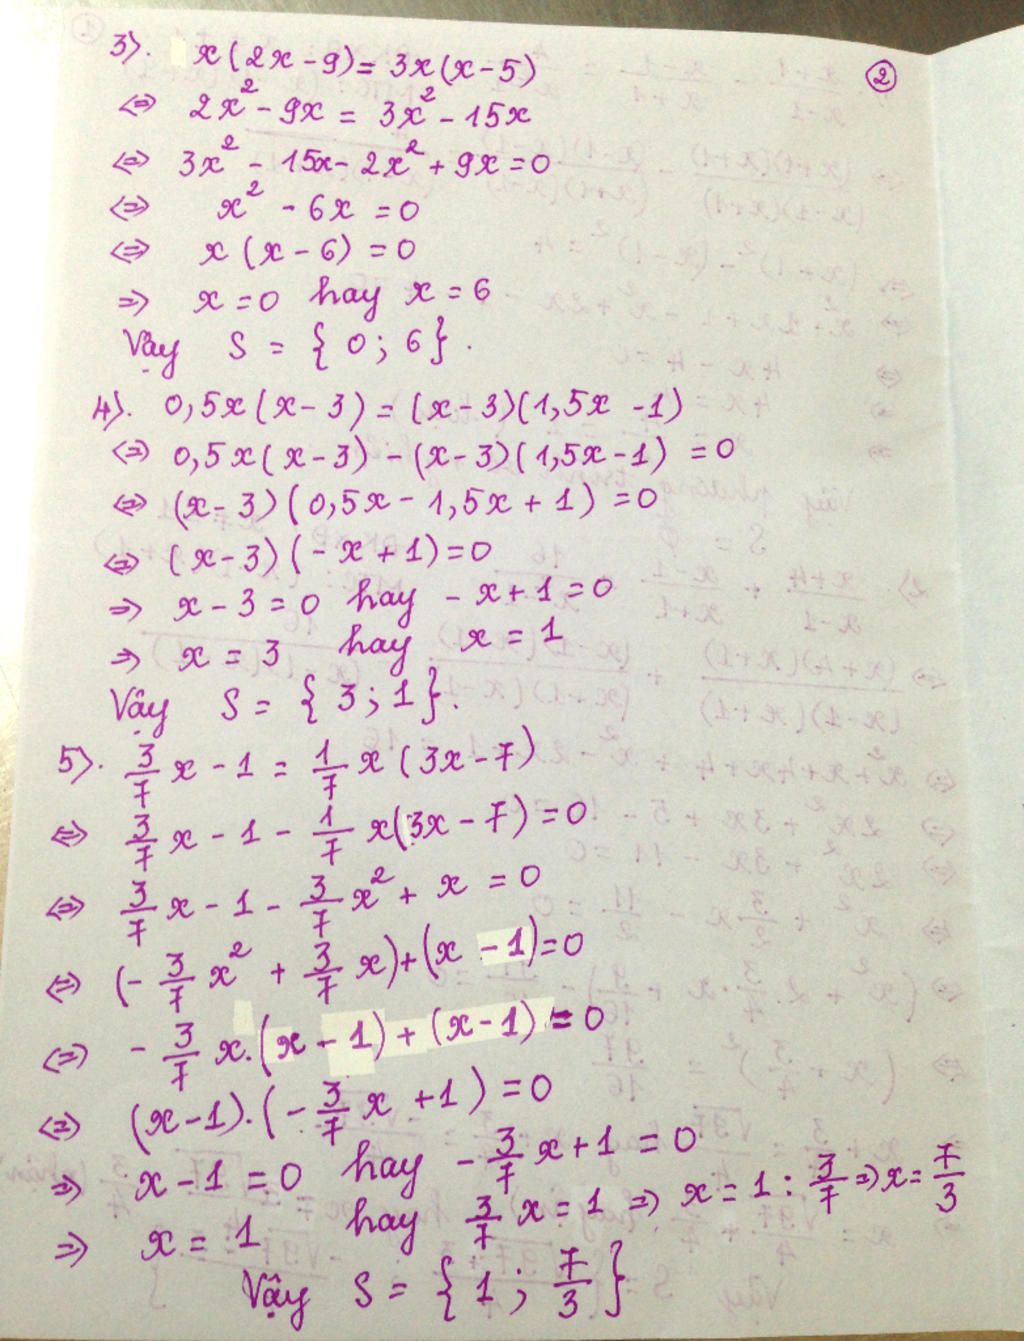 2
3). x(2x-9) = 3x(x-5)
⇔ 2x² - 9x = 3x² - 15x
⇔ 3x² - 15x - 2x² + 9x = 0
⇔ x² - 6x = 0
⇔ x(x-6) = 0
⇒ x = 0 hay x = 6
Vậy S = {0; 6}.
4). 0,5x(x-3) = (x-3)(1,5x -1)
⇔ 0,5x(x-3) - (x-3)(1,5x-1) = 0
⇔ (x-3)(0,5x - 1,5x + 1) = 0
⇔ (x-3)(-x+1) = 0
⇒ x - 3 = 0 hay -x + 1 = 0
⇒ x = 3 hay x = 1
Vậy S = {3; 1}.
5). 3/7 x - 1 = 1/7 x(3x-7)
⇔ 3/7 x - 1 - 1/7 x(3x-7) = 0
⇔ 3/7 x - 1 - 3/7 x² + x = 0
⇔ (-3/7 x² + 3/7 x) + (x - 1) = 0
⇔ -3/7 x.(x-1) + (x-1) = 0
⇔ (x-1).(-3/7 x + 1) = 0
⇒ x - 1 = 0 hay -3/7 x + 1 = 0
⇒ x = 1 hay 3/7 x = 1 ⇒ x = 1 : 3/7 ⇒ x = 7/3
Vậy S = {1; 7/3}